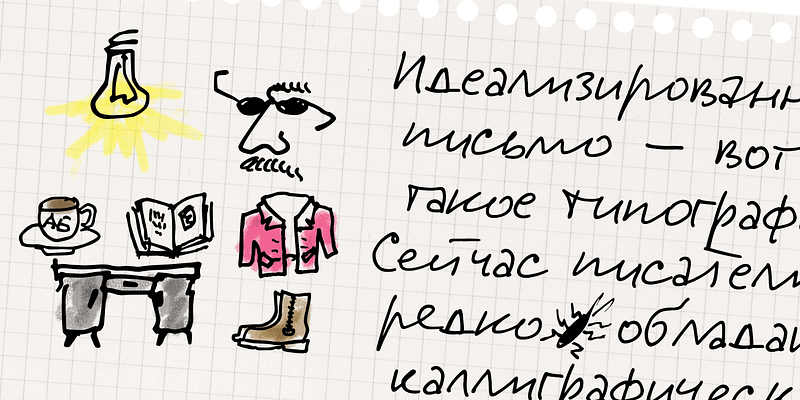 АБ
Идеализированн
письмо — вот
такое типограф
Сейчас писатели
редко обладаю
каллиграфическ